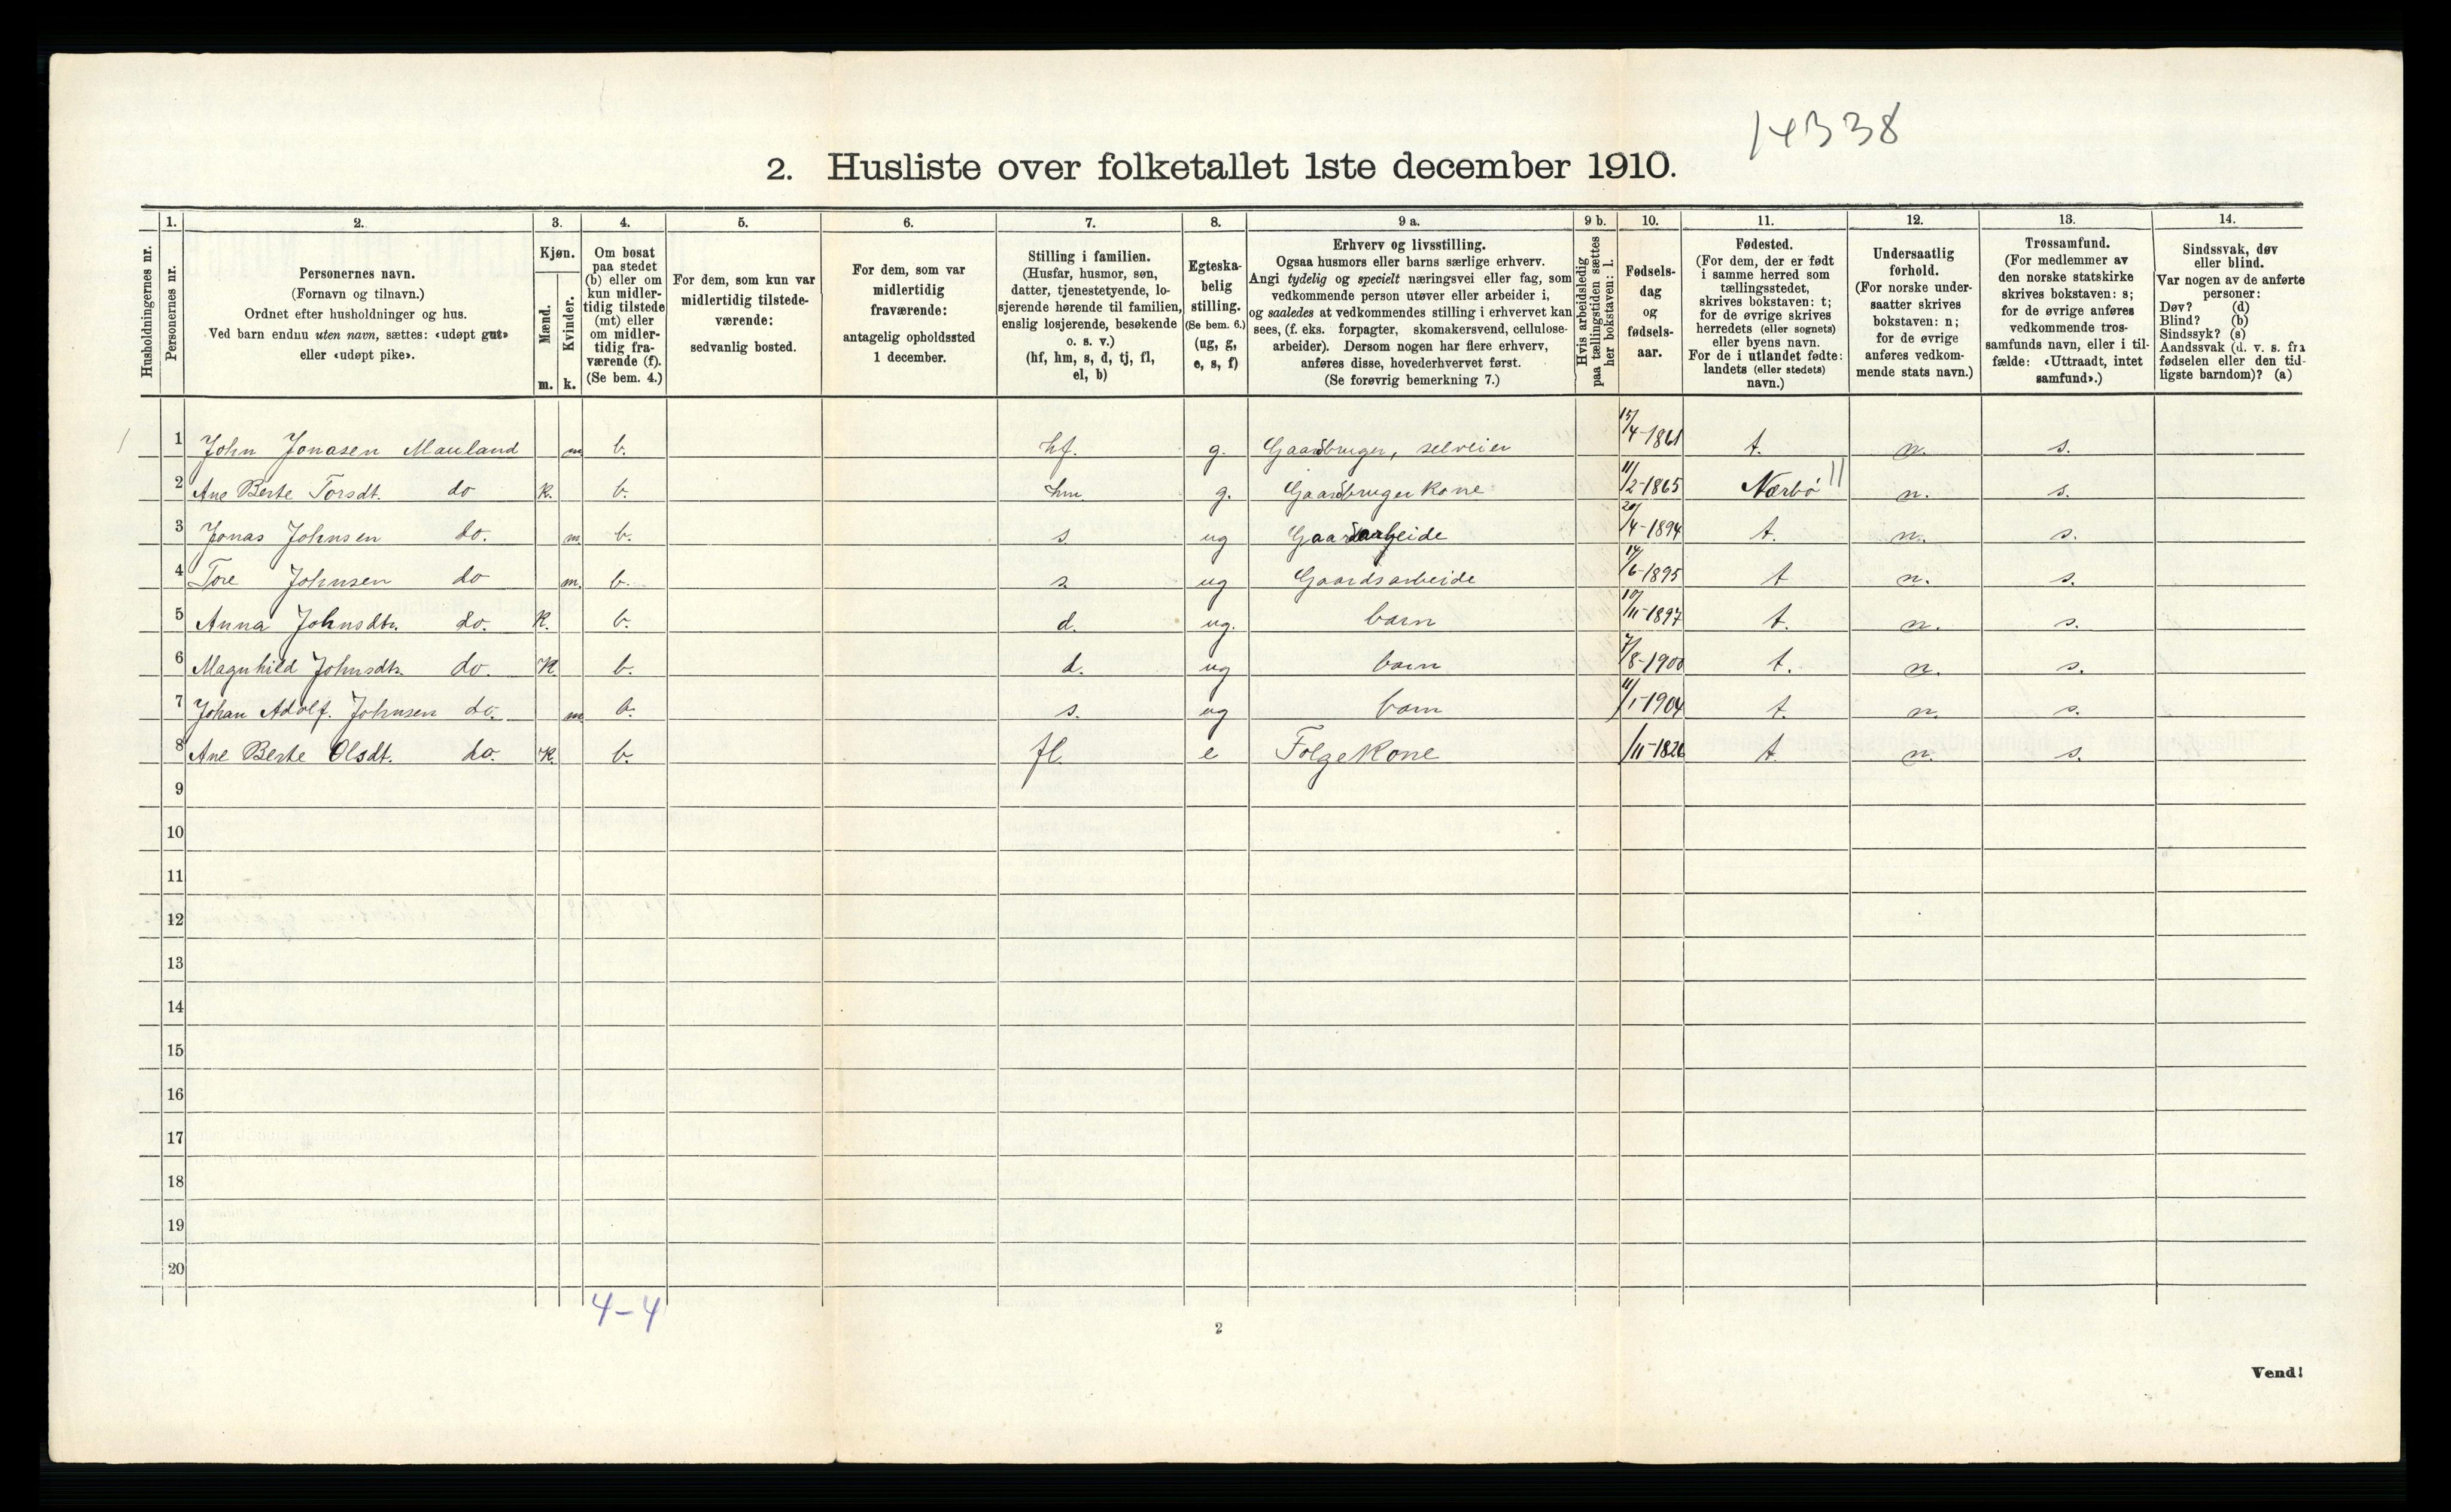 14338
2. Husliste over folketallet 1ste december 1910.
Husholdningernes nr.
1.
Personernes nr.
2.
Personernes navn.
(Fornavn og tilnavn.)
Ordnet efter husholdninger og hus.
Ved barn endnu uten navn, sættes: «udøpt gut»
eller «udøpt pike».
3.
Kjøn.
Mænd.
Kvinder.
m. k.
4.
Om bosat
paa stedet
(b) eller om
kun midler-
tidig tilstede
(mt) eller
om midler-
tidig fra-
værende (f).
(Se bem. 4.)
5.
For dem, som kun var
midlertidig tilstede-
værende:
sedvanlig bosted.
6.
For dem, som var
midlertidig
fraværende:
antagelig opholdssted
1 december.
7.
Stilling i familien.
(Husfar, husmor, søn,
datter, tjenestetyende, lo-
sjerende hørende til familien,
enslig losjerende, besøkende
o. s. v.)
(hf, hm, s, d, tj, fl,
el, b)
8.
Egteska-
belig
stilling.
(Se bem. 6.)
(ug, g,
e, s, f)
9 a.
Erhverv og livsstilling.
Ogsaa husmors eller barns særlige erhverv.
Angi tydelig og specielt næringsvei eller fag, som
vedkommende person utøver eller arbeider i,
og saaledes at vedkommendes stilling i erhvervet kan
sees, (f. eks. forpagter, skomakersvend, cellulose-
arbeider). Dersom nogen har flere erhverv,
anføres disse, hovederhvervet først.
(Se forøvrig bemerkning 7.)
9 b.
Hvis arbeidsledig
paa tællingstiden sættes
her bokstaven: l.
10.
Fødsels-
dag
og
fødsels-
aar.
11.
Fødested.
(For dem, der er født
i samme herred som
tællingsstedet,
skrives bokstaven: t;
for de øvrige skrives
herredets (eller sognets)
eller byens navn.
For de i utlandet fødte:
landets (eller stedets)
navn.)
12.
Undersaatlig
forhold.
(For norske under-
saatter skrives
bokstaven: n;
for de øvrige
anføres vedkom-
mende stats navn.)
13.
Trossamfund.
(For medlemmer av
den norske statskirke
skrives bokstaven: s;
for de øvrige anføres
vedkommende tros-
samfunds navn, eller i til-
fælde: «Uttraadt, intet
samfund».)
14.
Sindssvak, døv
eller blind.
Var nogen av de anførte
personer:
Døv? (d)
Blind? (b)
Sindssyk? (s)
Aandssvak (d. v. s. fra
fødselen eller den tid-
ligste barndom)? (a)
1 John Jonasen Mauland m b. hf. g. Gaardbruger, selveier 15/4-1861 t. n. s.
2 Ane Berte Torsdt. do k. b. hm g. Gaardbruger kone 11/2-1865 Nærbø 11 n. s.
3 Jonas Johnsen do. m b. s. ug Gaardsarbeide 20/4-1894 t. n. s.
4 Tore Johnsen do m. b. s. ug Gaardsarbeide 14/6-1895 t n. s.
5 Anna Johnsdtr. do. k. b. d. ug. barn 10/11-1897 t. n. s.
6 Magnhild Johnsdtr. do. k b. d. ug barn 7/8-1900 t. n. s.
7 Johan Adolf. Johnsen do. m b. s. ug barn 11/1-1904 t. n. s.
8 Ane Berte Olsdt. do. k. b. fl. e Folgekone /11-1826 t. n. s.
9
10
11
12
13
14
15
16
17
18
19
20
4-4
2
Vend!